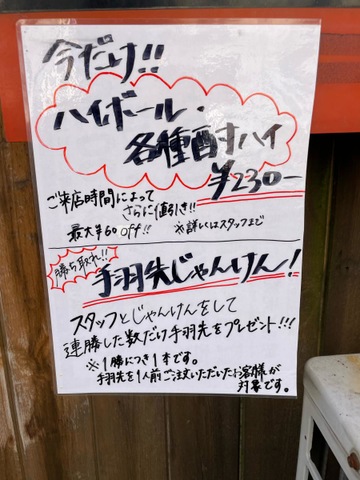 今だけ!!
ハイボール・
各種酎ハイ
¥230-
ご来店時間によって
さらに値引き!!
最大¥60 off!! ※詳しくはスタッフまで
勝ち取れ!!
手羽先じゃんけん!
スタッフとじゃんけんをして
連勝した数だけ手羽先をプレゼント!!!
※1勝につき1本です。
手羽先を1人前ご注文いただいたお客様が
対象です。